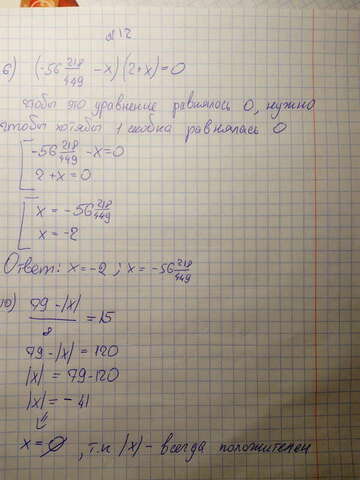 №12
б) (-56 218/449 - x)(2+x)=0
чтобы это уравнение равнялось 0, нужно
чтобы хотябы 1 скобка равнялась 0
[ -56 218/449 - x=0
2+x=0
=
[ x = -56 218/449
x = -2
Ответ: x=-2 ; x= -56 218/449
10) (79 - |x|)/8 = 15
79-|x| = 120
|x| = 79-120
|x| = -41
⇓
x=∅, т.к |x| - всегда положителен